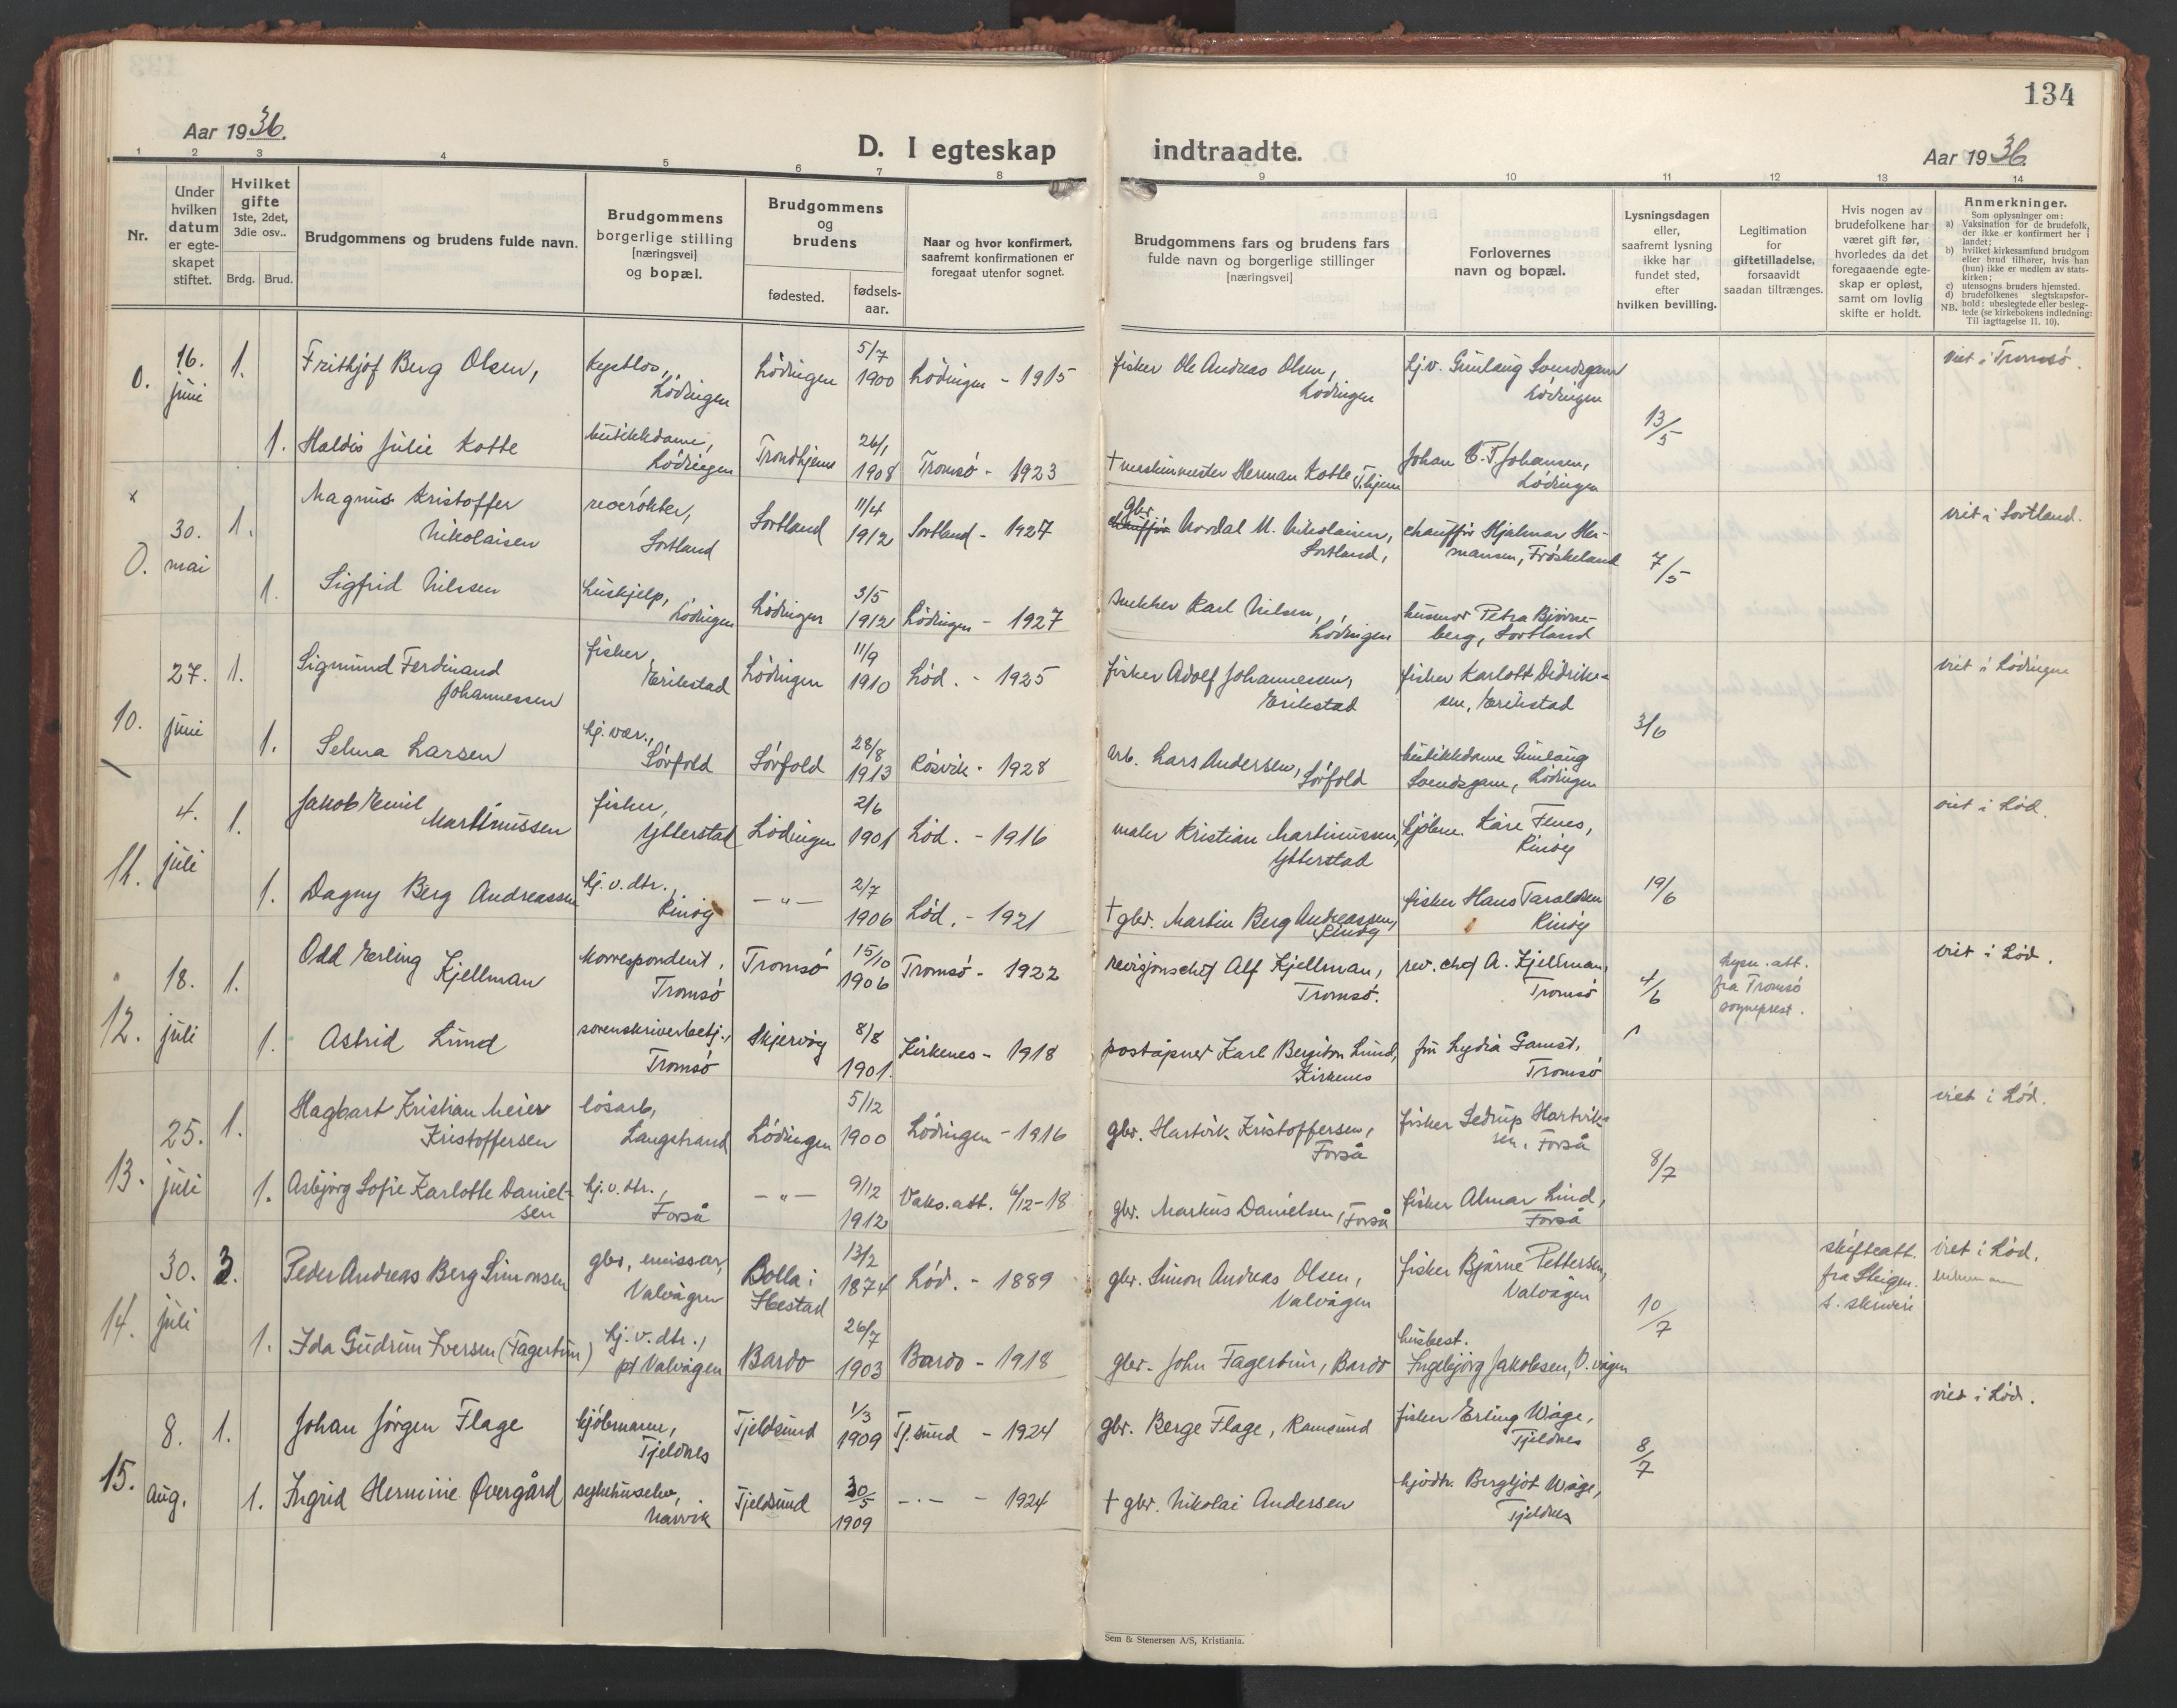 134
Aar 1936.
D. I egteskap indtraadte.
Aar 1936
1 2 3 4 5 6 7 8 9 10 11 12 13 14
Nr.
Under hvilken datum er egte-skapet stiftet.
Hvilket gifte
1ste, 2det, 3die osv..
Brdg. Brud.
Brudgommens og brudens fulde navn.
Brudgommens borgerlige stilling [næringsvei] og bopæl.
Brudgommens og brudens
fødested.
fødsels-aar.
Naar og hvor konfirmert, saafremt konfirmationen er foregaat utenfor sognet.
Brudgommens fars og brudens fars fulde navn og borgerlige stillinger [næringsvei]
Forlovernes navn og bopæl.
Lysningsdagen eller, saafremt lysning ikke har fundet sted, efter hvilken bevilling.
Legitimation for giftetilladelse, forsaavidt saadan tiltrænges.
Hvis nogen av brudefolkene har været gift før, hvorledes da det foregaaende egte-skap er opløst, samt om lovlig skifte er holdt.
Anmerkninger.
Som oplysninger om:
a) Vaksination for de brudefolk, der ikke er konfirmert her i landet;
b) hvilket kirkesamfund brudgom eller brud tilhører, hvis han (hun) ikke er medlem av stats-kirken;
c) utensogns bruders hjemsted.
d) brudefolkenes slegtskapsfor-hold: ubeslegtede eller besleg-tede (se kirkebokens indledning:
NB. Til iagttagelse II. 10).
0. 16. juni 1. Frithjof Berg Olsen, Lödingen Lödingen 5/7 1900 Lödingen - 1915 fisker Ole Andreas Olsen, Lödingen hj.v. Gunlaug Lödingen 13/5 viet i Tromsö.
1. Haldis Julie Kotte butikkdame, Lödingen Trondhjem 26/1 1908 Tromsö - 1923 † maskinmester Herman Kotte T.hjem Johan Johansen, Lödingen
x 0. 30. mai 1. Magnus Kristoffer Nikolaisen reverökter, Sortland Sortland 11/4 1912 Sortland - 1927 gbr. chaufför Nordal M. Nikolaisen, Sortland, chaufför Hjalmar Her-mansen, Fröskeland 7/5 viet i Sortland.
1. Sigfrid Nilsen huskjelp, Lödingen Lödingen 3/5 1912 Lödingen - 1927 snekker Karl Nilsen, Lödingen husmor Petra Bjørne-berg, Sortland
10. 27. juni 1. Sigmund Ferdinand Johannessen fisker, Erikstad Lödingen 11/9 1910 Löd. - 1925 fisker Adolf Johannessen, Erikstad fisker Karlott Didrik-sen, Erikstad 3/6 viet i Lödingen
1. Selma Larsen hj. vær., Sörfold Sörfold 28/8 1913 Rösvik - 1928 arb. Lars Andersen, Sörfold butikkdame Gunlaug Lödingen
11. 4. juli 1. Jakob Emil Martinussen fisker, Ytterstad Lödingen 2/6 1901 Löd. - 1916 maler Kristian Martinussen, Ytterstad kjöbm. Kåre Fines, Rinöy 19/6 viet i Löd.
1. Dagny Berg Andreassen hj. v. dtr., Rinöy — " — 2/7 1906 Löd. - 1921 † gbr. Martin Berg Andreassen, Rinöy fisker Hans Taraldsen Rinöy
12. 18. juli 1. Odd Erling Kjellman korrespondent, Tromsö Tromsö 15/10 1906 Tromsö - 1922 revisjonschef Alf Kjellman, Tromsö. rev. chef A. Kjellman, Tromsö 4/6 lysn. att. fra Tromsö sogneprest. viet i Löd.
1. Astrid Lund sorenskriverbetj., Tromsö Skjervöy 8/8 1901. Kirkenes - 1918 poståpner Karl Bergiton Lund, Kirkenes fru Lydia Gamst, Tromsö
13. 25. juli 1. Hagbart Kristian Meier Kristoffersen lösarb, Langstrand Lödingen 5/12 1900 Lödingen - 1916 gbr. Hartvik Kristoffersen, Forså fisker Sedrup Hartvik-sen, Forså 8/7 viet i Löd.
1. Asbjörg Sofie Karlotte Daniel-sen hj. v. dtr., Forså — " — 9/12 1912 Vaks. att. 6/12-18 gbr. Markus Danielsen, Forså fisker Almar Lind, Forså
14. 30. juli 3. Peder Andreas Berg Simonsen gbr, emissær, Valvågen Bolla i Ibestad 13/2 1874 Löd. - 1889 gbr. Simon Andreas Olsen, Valvågen fisker Bjarne Pettersen, Valvågen 10/7 skifteatt. fra Steigen s. skriveri viet i Löd.
1. Ida Gudrun Iversen (Fagertun) hj. v. dtr., pt Valvågen Bardo 26/7 1903 Bardo - 1918 gbr. John Fagertun, Bardo husbest. Ingebjörg Jakobsen, V.vågen
15. 8. aug. 1. Johan Jörgen Flage kjöbmann, Tjeldnes Tjeldsund 1/3 1909 Tj.sund - 1924 gbr. Berge Flage, Ramsund fisker Erling Wåge, Tjeldnes 8/7 viet i Löd.
1. Ingrid Hermine Övergård sykehuselev, Narvik Tjeldsund 30/5 1909 — " — - 1924 † gbr. Nikolai Andersen Bergljot Wåge, Tjeldnes
Sem & Stenersen A/S, Kristiania.